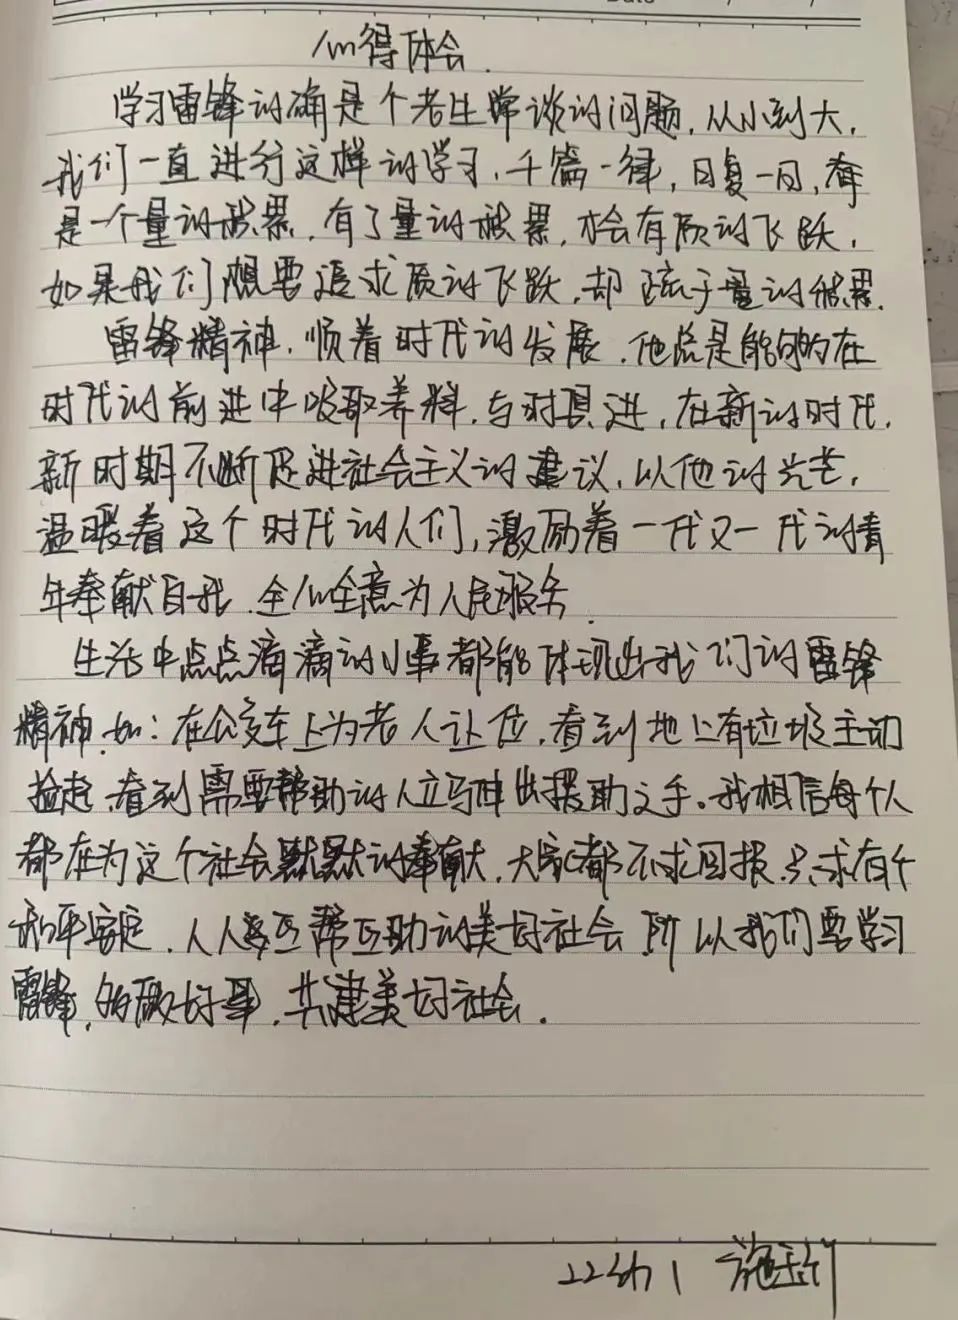 心得体会.
学习雷锋的确是个老生常谈的问题，从小到大，
我们一直进行这样的学习，千篇一律，日复一日，
是一个量的积累，有了量的积累，才会有质的飞跃，
如果我们想要追求质的飞跃，却疏于量的积累.
雷锋精神，顺着时代的发展，他总是能够的在
时代的前进中吸取养料，与时具进，在新的时代，
新时期不断促进社会主义的建议，以他的光芒，
温暖着这个时代的人们，激励着一代又一代的青
年奉献自我，全心全意为人民服务.
生活中点点滴滴的小事都能体现出我们的雷锋
精神，如：在公交车上为老人让位，看到地上有垃圾主动
捡起，看到需要帮助的人立马伸出援助之手。我相信每个人
都在为这个社会默默的奉献，大家都不求回报，只求有个
和平安定，人人互帮互助的美好社会，所以我们要学习
雷锋，多做好事，共建美好社会.
22幼1